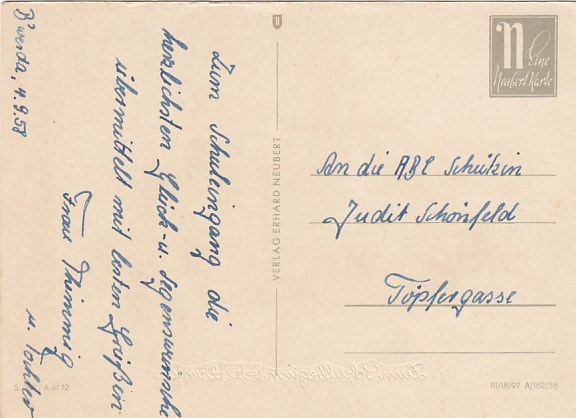 B'werda, 4.9.58
Zum Schuleingang die
herzlichsten Glück- u. Segenswünsche
übermittelt mit besten Grüßen
Frau Thimmig
u. Tochter
VERLAG ERHARD NEUBERT
N Eine
Neubert Karte
An die ABC Schützin
Judit Schönfeld
Töpfergasse
A 4172
III/18/97 A/162/58